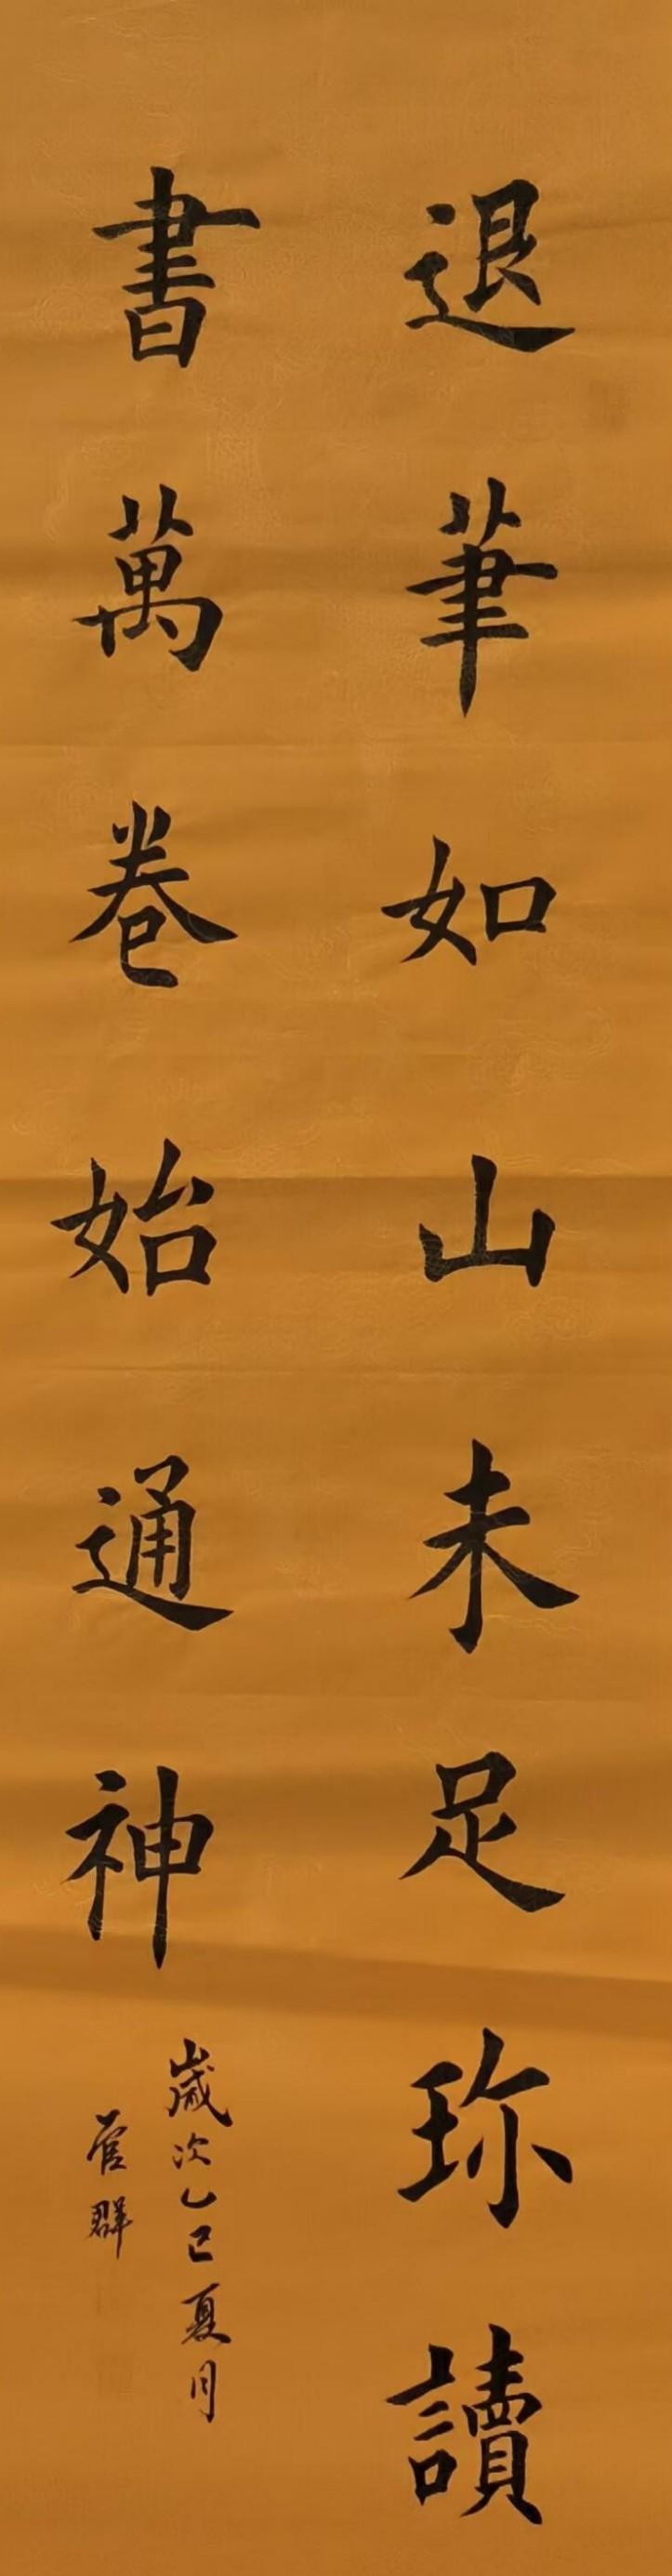 退筆如山未足珎讀
書萬卷始通神
歲次乙巳夏月
管群